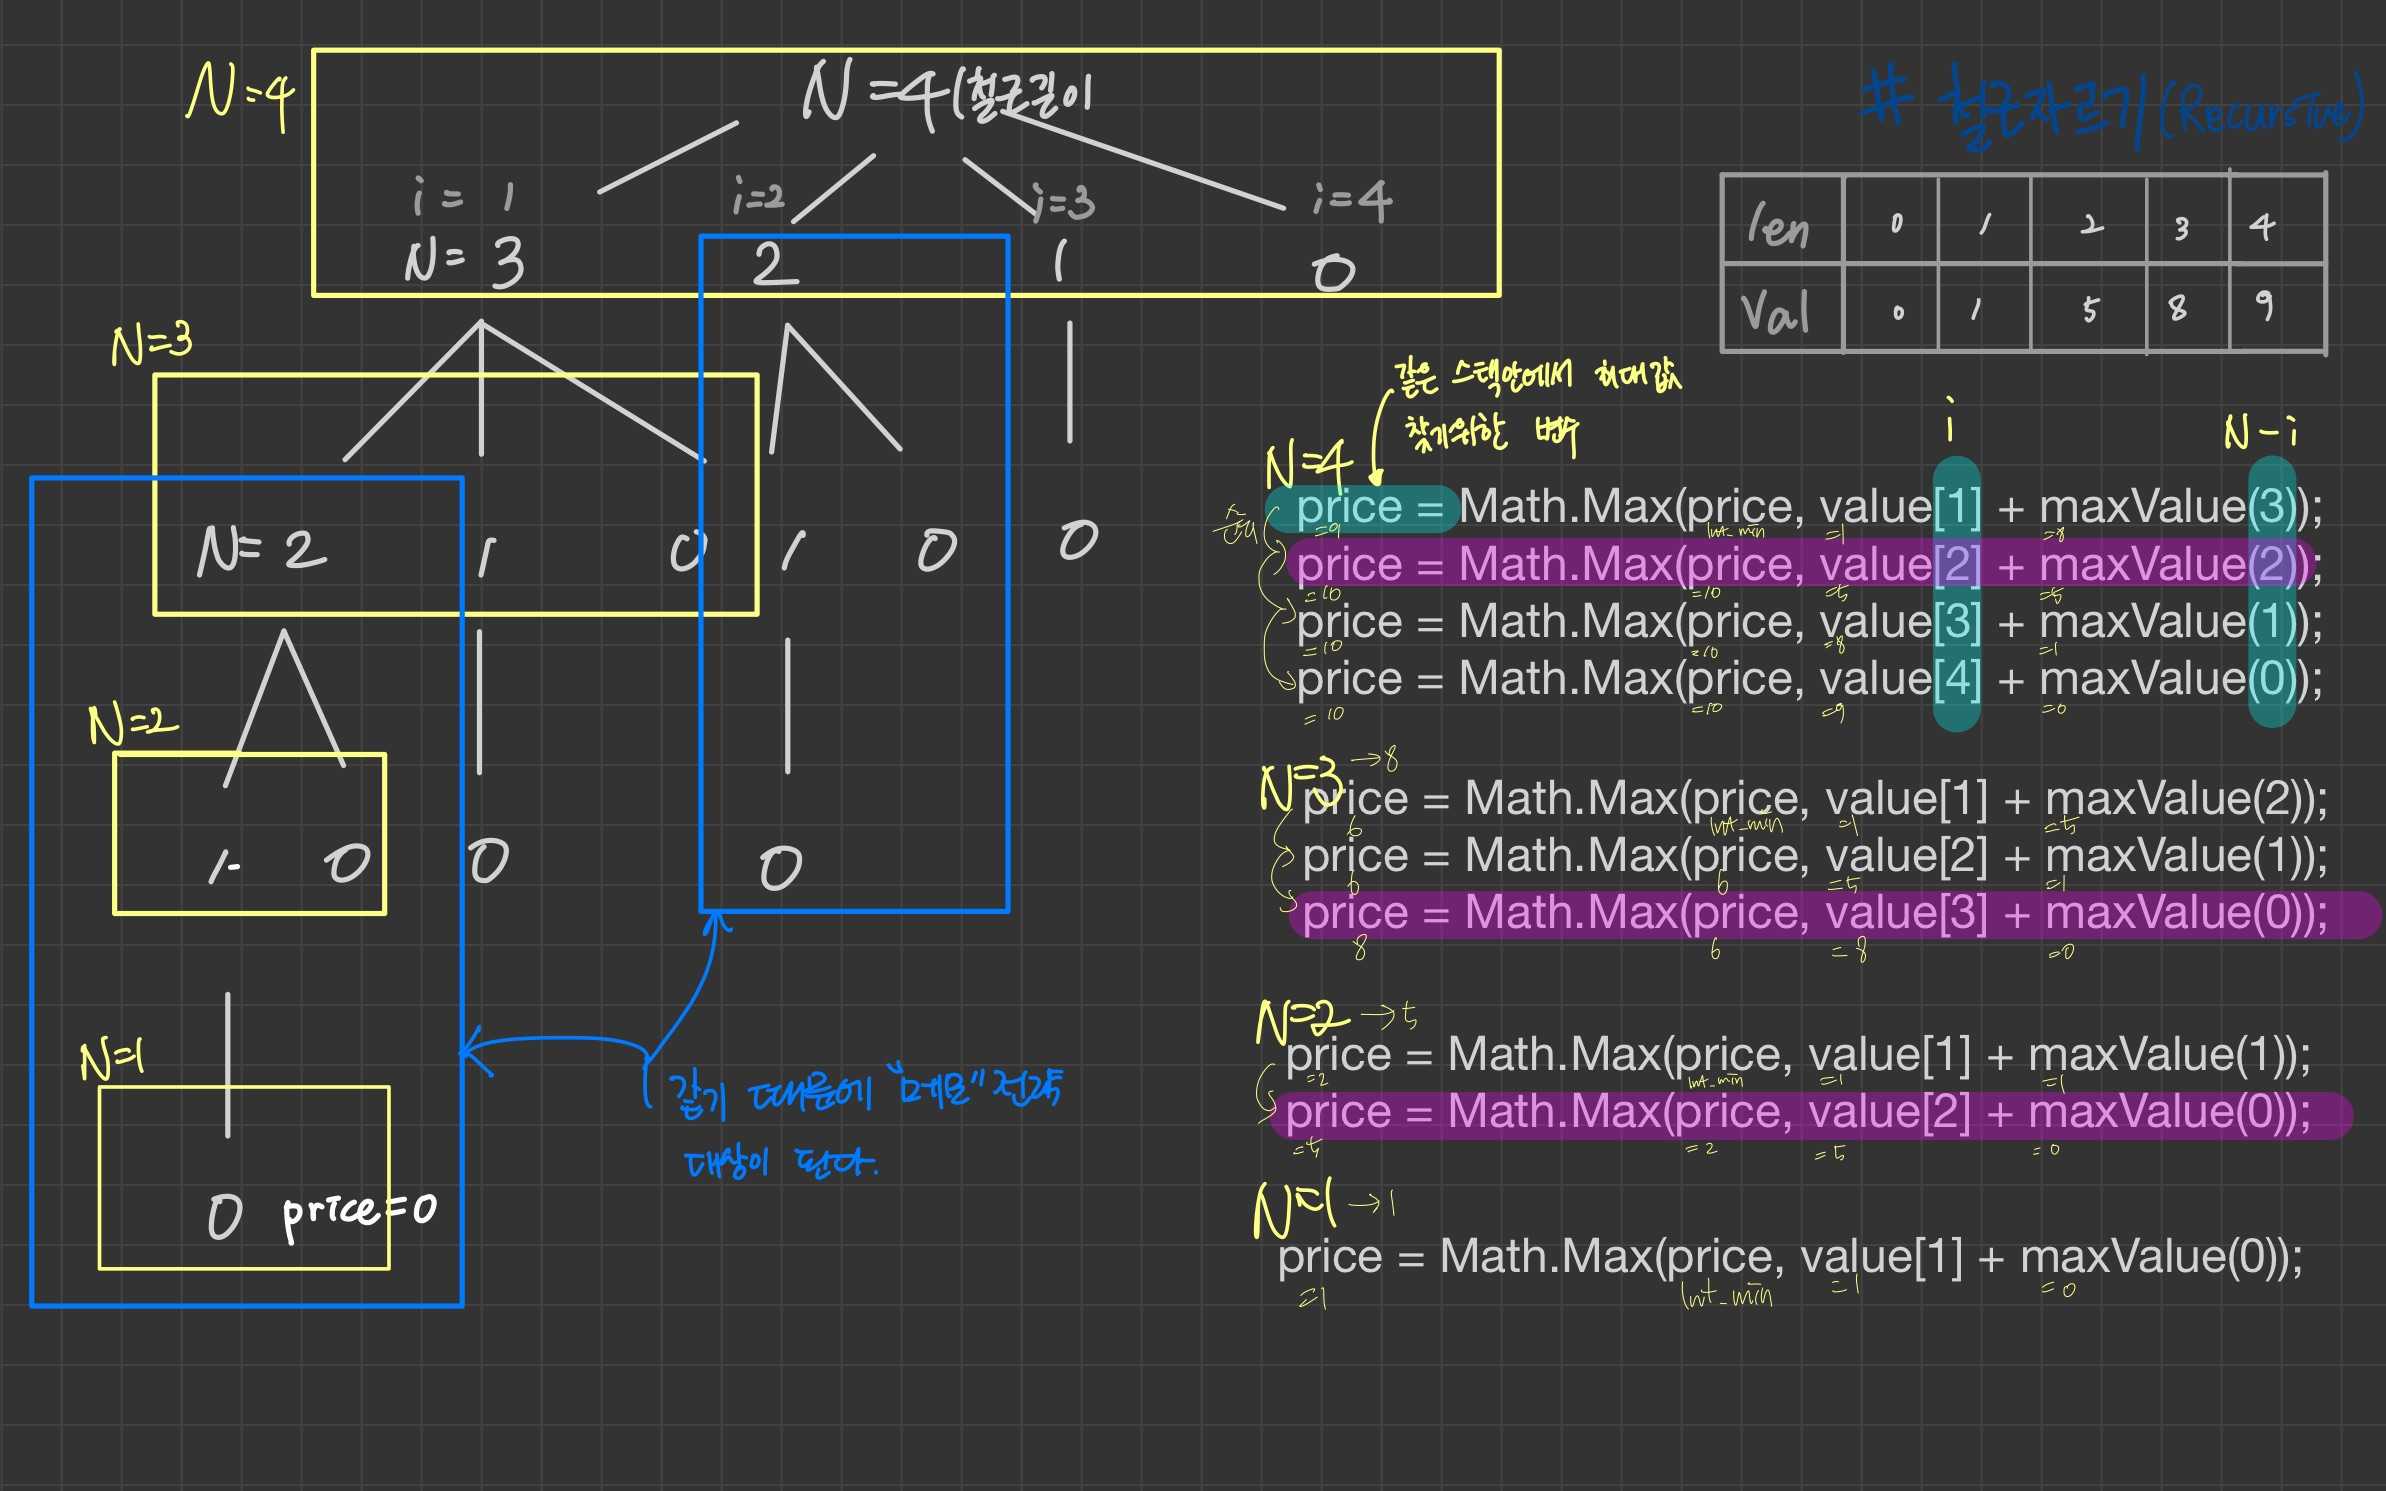 # 철근자르기 (Recursive)
len 0 1 2 3 4
Val 0 1 5 8 9
N=4
N=4(철근길이
i=1 i=2 i=3 i=4
N=3 2 1 0
N=3
N=2 1 0 1 0 0
N=2
1 0 0 0
N=1
0 price=0
같기 때문에 "메모" 전략
대상이 된다.
같은 스택안에서 최대값
찾기위한 변수
i N-i
N=4
price = Math.Max(price, value[1] + maxValue(3));
=9 Int_min =1 =8
price = Math.Max(price, value[2] + maxValue(2));
=10 =10 =5 =5
price = Math.Max(price, value[3] + maxValue(1));
=10 =10 =8 =1
price = Math.Max(price, value[4] + maxValue(0));
=10 =10 =9 =0
N=3 →8
price = Math.Max(price, value[1] + maxValue(2));
6 Int_min =1 =5
price = Math.Max(price, value[2] + maxValue(1));
6 6 =5 =1
price = Math.Max(price, value[3] + maxValue(0));
8 6 =8 =0
N=2 →5
price = Math.Max(price, value[1] + maxValue(1));
=2 Int_min =1 =1
price = Math.Max(price, value[2] + maxValue(0));
=5 =2 =5 =0
N=1 →1
price = Math.Max(price, value[1] + maxValue(0));
=1 Int_min =1 =0